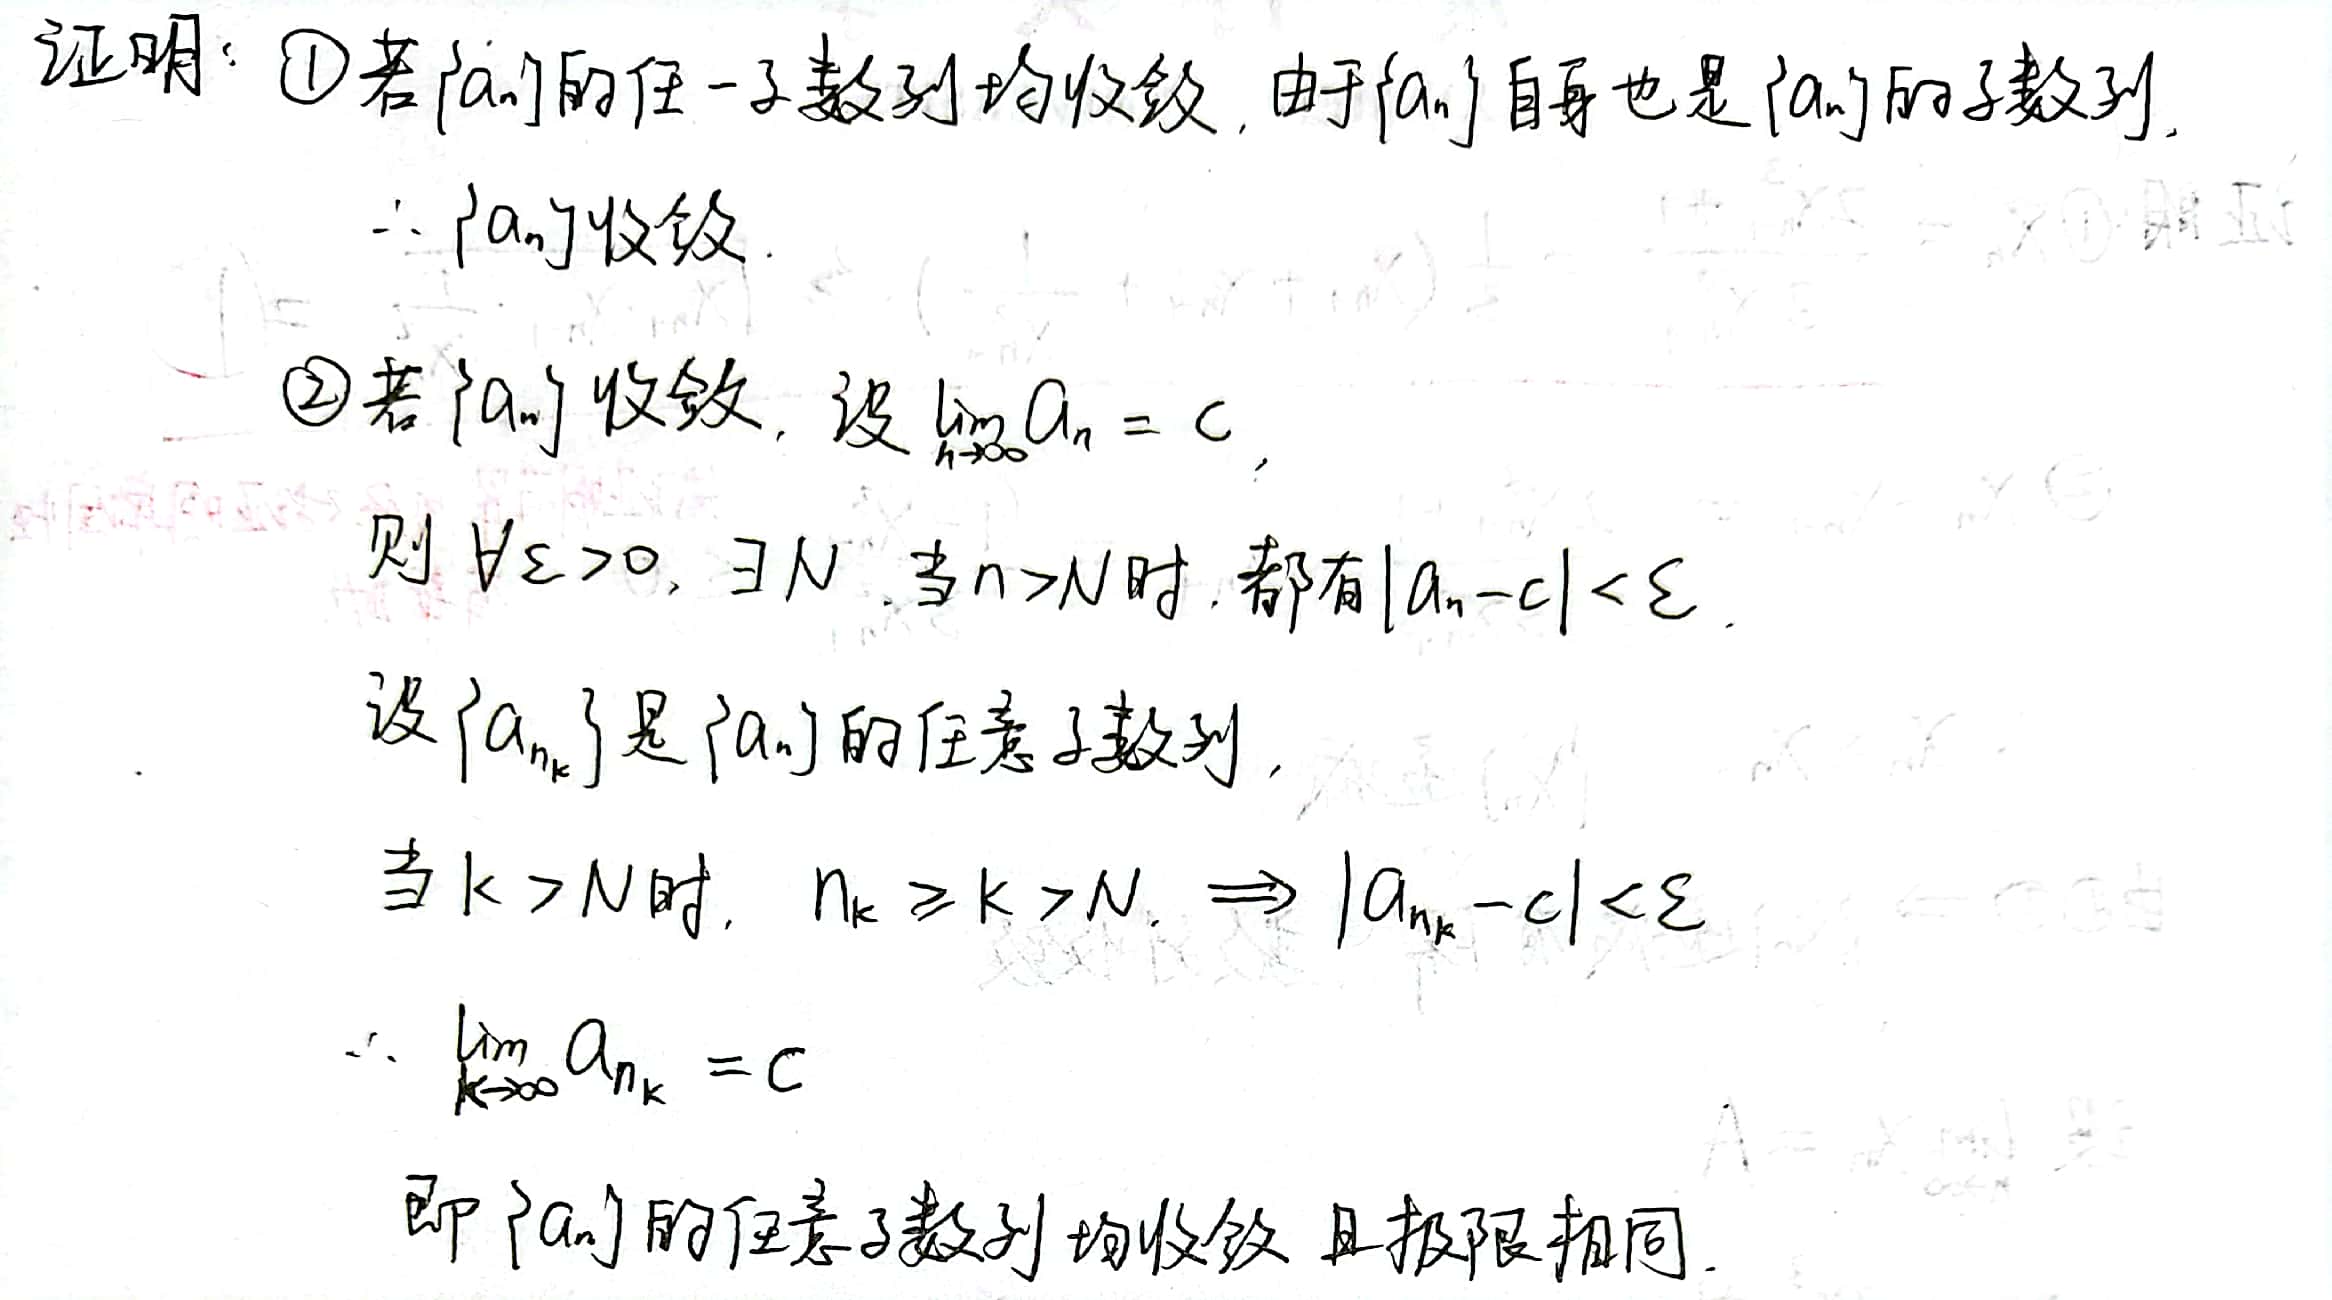 证明: ①若{aₙ}的任一子数列均收敛, 由于{aₙ}自身也是{aₙ}的子数列,
∴ {aₙ}收敛.
②若{aₙ}收敛, 设 lim_{n→∞} aₙ = c,
则 ∀ε>0, ∃N, 当n>N时, 都有|aₙ-c|<ε.
设{a_{n_k}}是{aₙ}的任意子数列,
当k>N时, n_k ≥ k > N. ⇒ |a_{n_k}-c|<ε
∴ lim_{k→∞} a_{n_k} = c
即{aₙ}的任意子数列均收敛且极限相同.